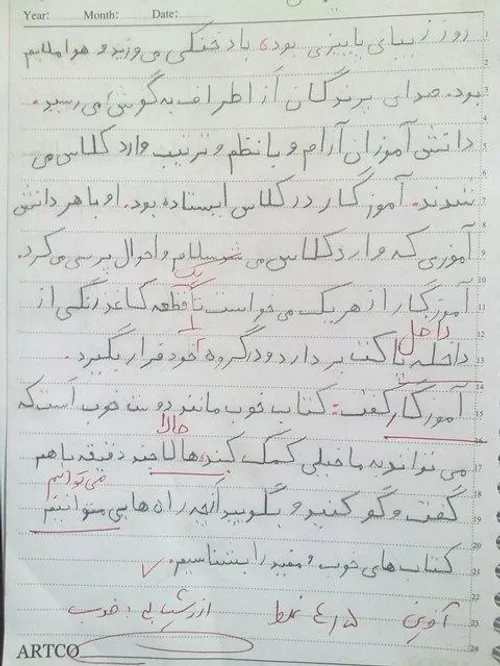 Year: Month: Date:
روز زیبای پاییزی بود، باد خنکی می وزید و هوا ملایم
بود. صدای پرندگان از اطراف به گوش می رسید.
دانش آموزان آرام و با نظم و ترتیب وارد کلاس می
شدند. آموزگار در کلاس ایستاده بود. او با هر دانش
آموزی که وارد کلاس می شد سلام و احوال پرسی می کرد.
یک
آموزگار از هر یک می خواست تا قطعه کاغذ رنگی از
داخل
داخله پاکت بردارد و در گروه خود قرار بگیرد.
آموزگار گفت: کتاب خوب مانند دوست خوب است که
حالا
می تواند به ما خیلی کمک کند، هالا چند دقیقه باهم
می توانیم
گفت و گو کنید و بگویید از چه راه هایی میتوانیم
کتاب های خوب و مفید را بشناسیم.
آوین ۴٫۵ غلط ارزشیابی: خوب
ARTCO